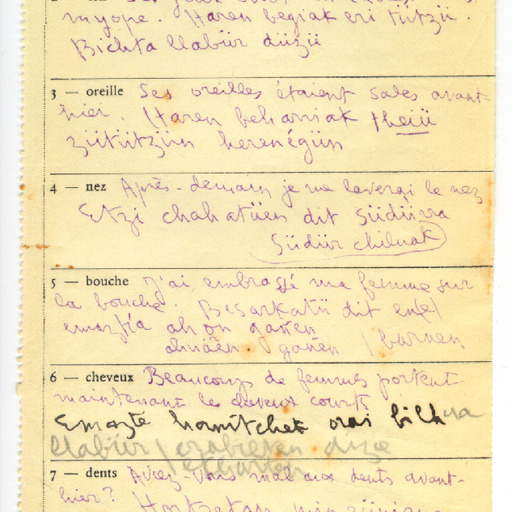 myope. Haren begiak eri tützü.
Bichta llabür düzü
3 — oreille Ses oreilles étaient sales avant-
hier. Haren beharriak theiü
zütützün herenégün
4 — nez Après-demain je me laverai le nez
Etzi chahatüen dit südürra
südür chiluak
5 — bouche J'ai embrassé ma femme sur
la bouche. Besarkatü dit en(e)
emaztia ahon gañen
gañen / barnen
6 — cheveux Beaucoup de femmes portent
maintenant les cheveux courts
Emazte hanitchek orai bilhua
llabür / erabilten dize
7 — dents Avez-vous mal aux dents avant-
hier?